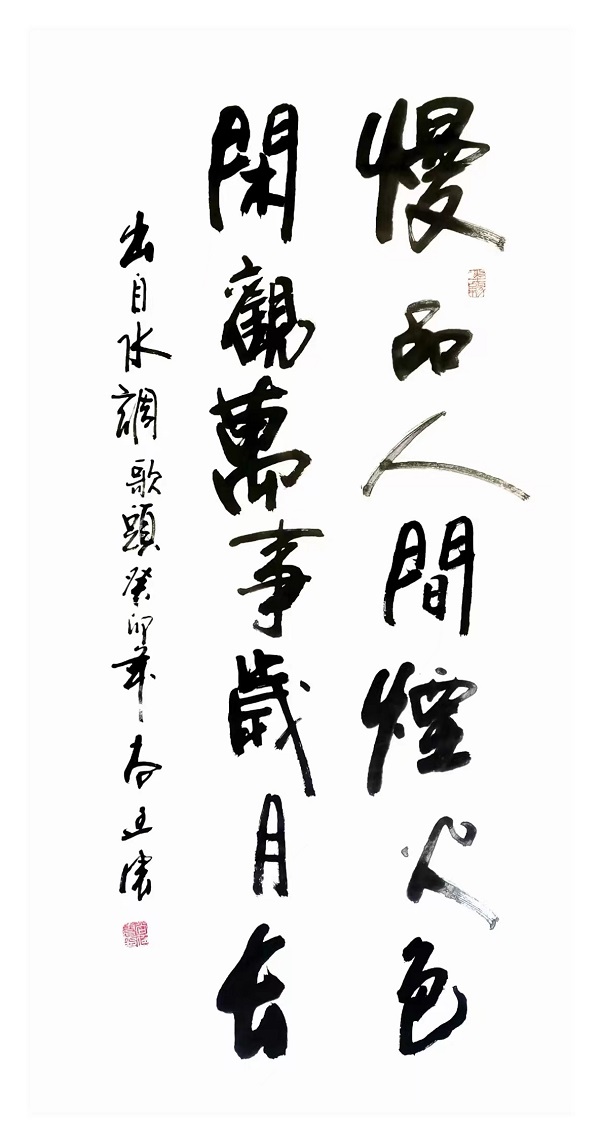 慢品人間煙火色
閑觀萬事歲月長
出自水調歌頭癸卯年春